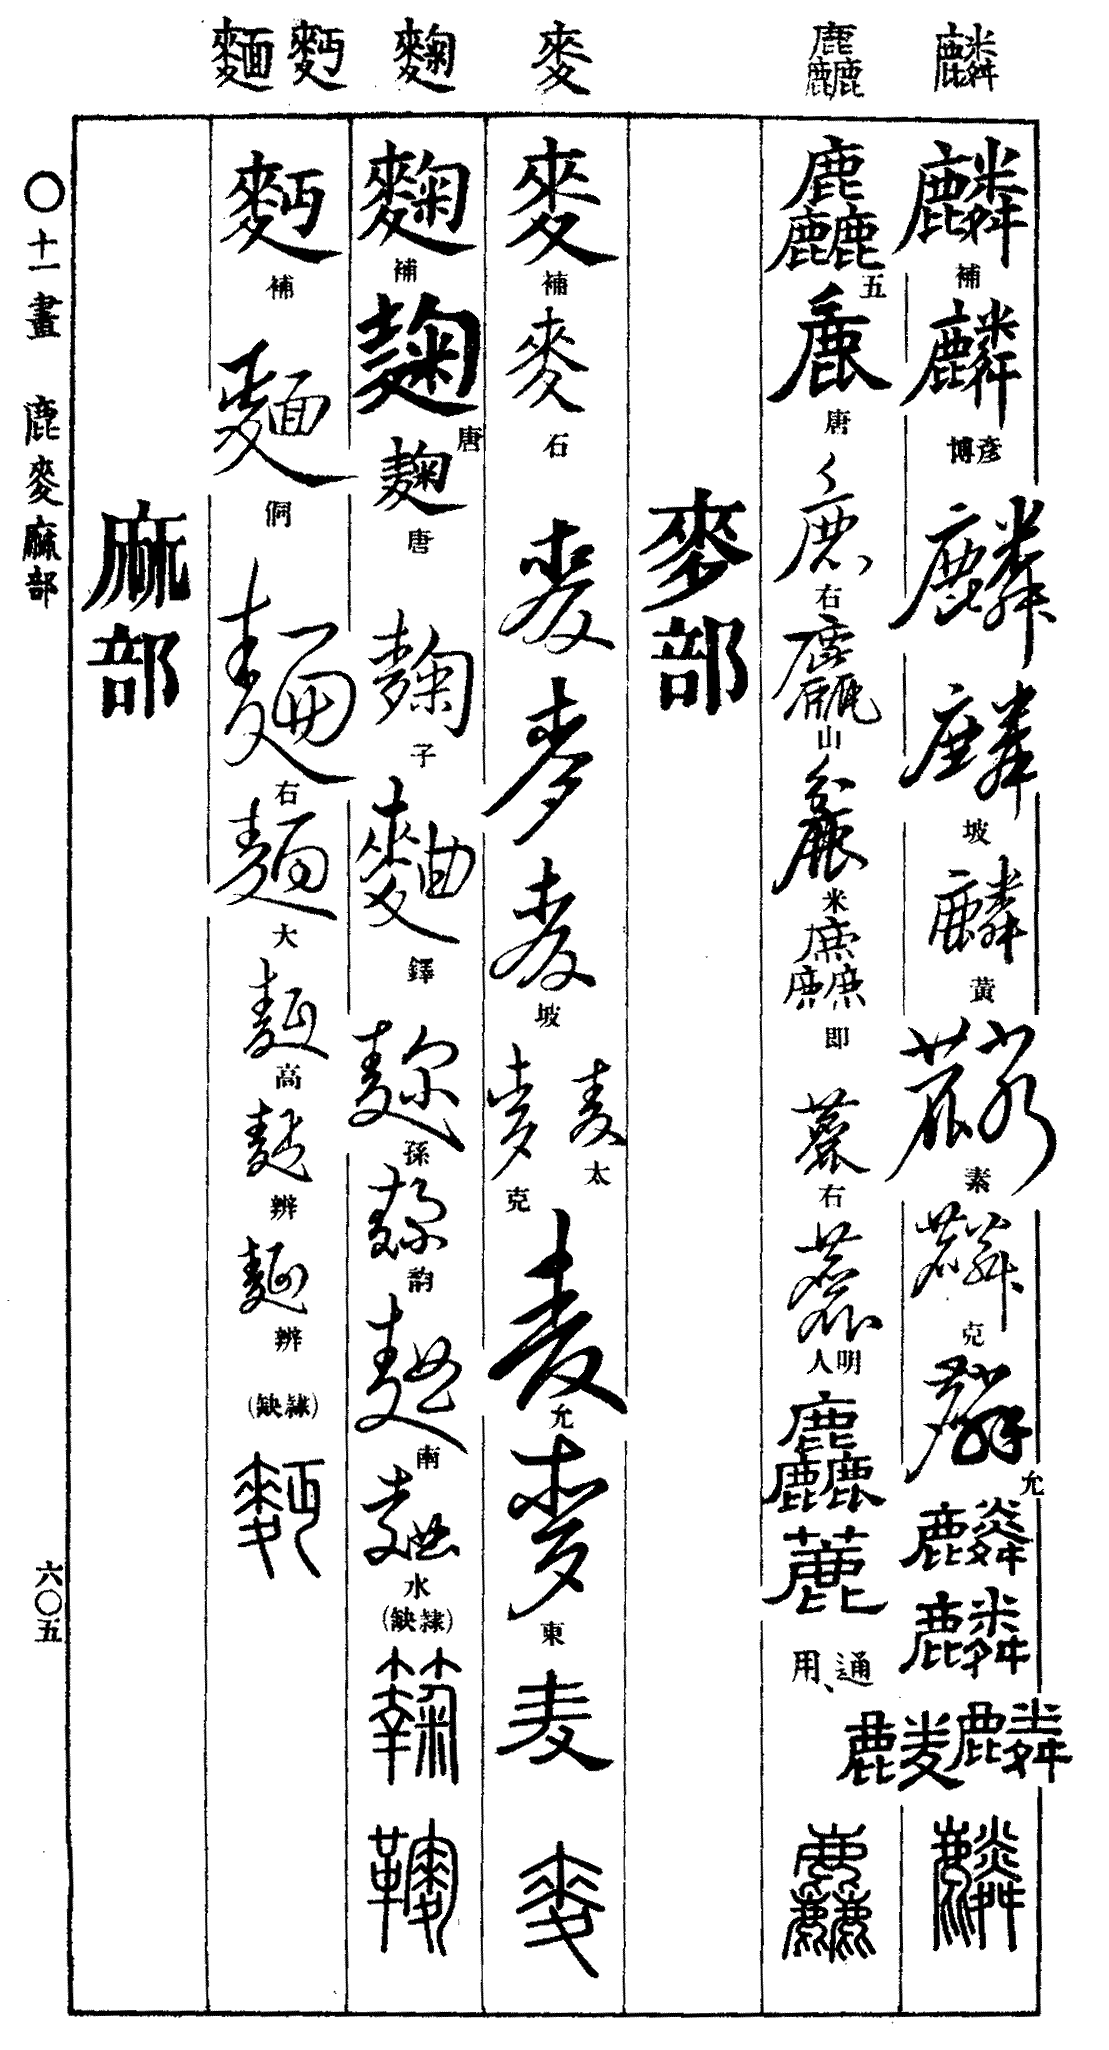 麟
麤
麥
麴
麪麵
麟
補
麟
彥博
麟
麟
坡
麟
黃
麟
素
麟
克
麟
允
麟
麟
麟
麤
五
麤
唐
麤
右
麤
山
麤
米
麤
即
麤
右
麤
明人
麤
麤
通用、
麤
麥部
麥
補
麥
石
麥
麥
麥
坡
麥
太
麥
克
麥
允
麥
東
麦
麥
麴
補
麴
唐
麴
唐
麴
子
麯
鐸
孫
韵
南
水
(隸缺)
麪
補
麵
侗
麵
右
麵
大
麵
高
麪
辨
麵
辨
(隸缺)
麪
麻部
○十一畫 鹿麥麻部
六〇五